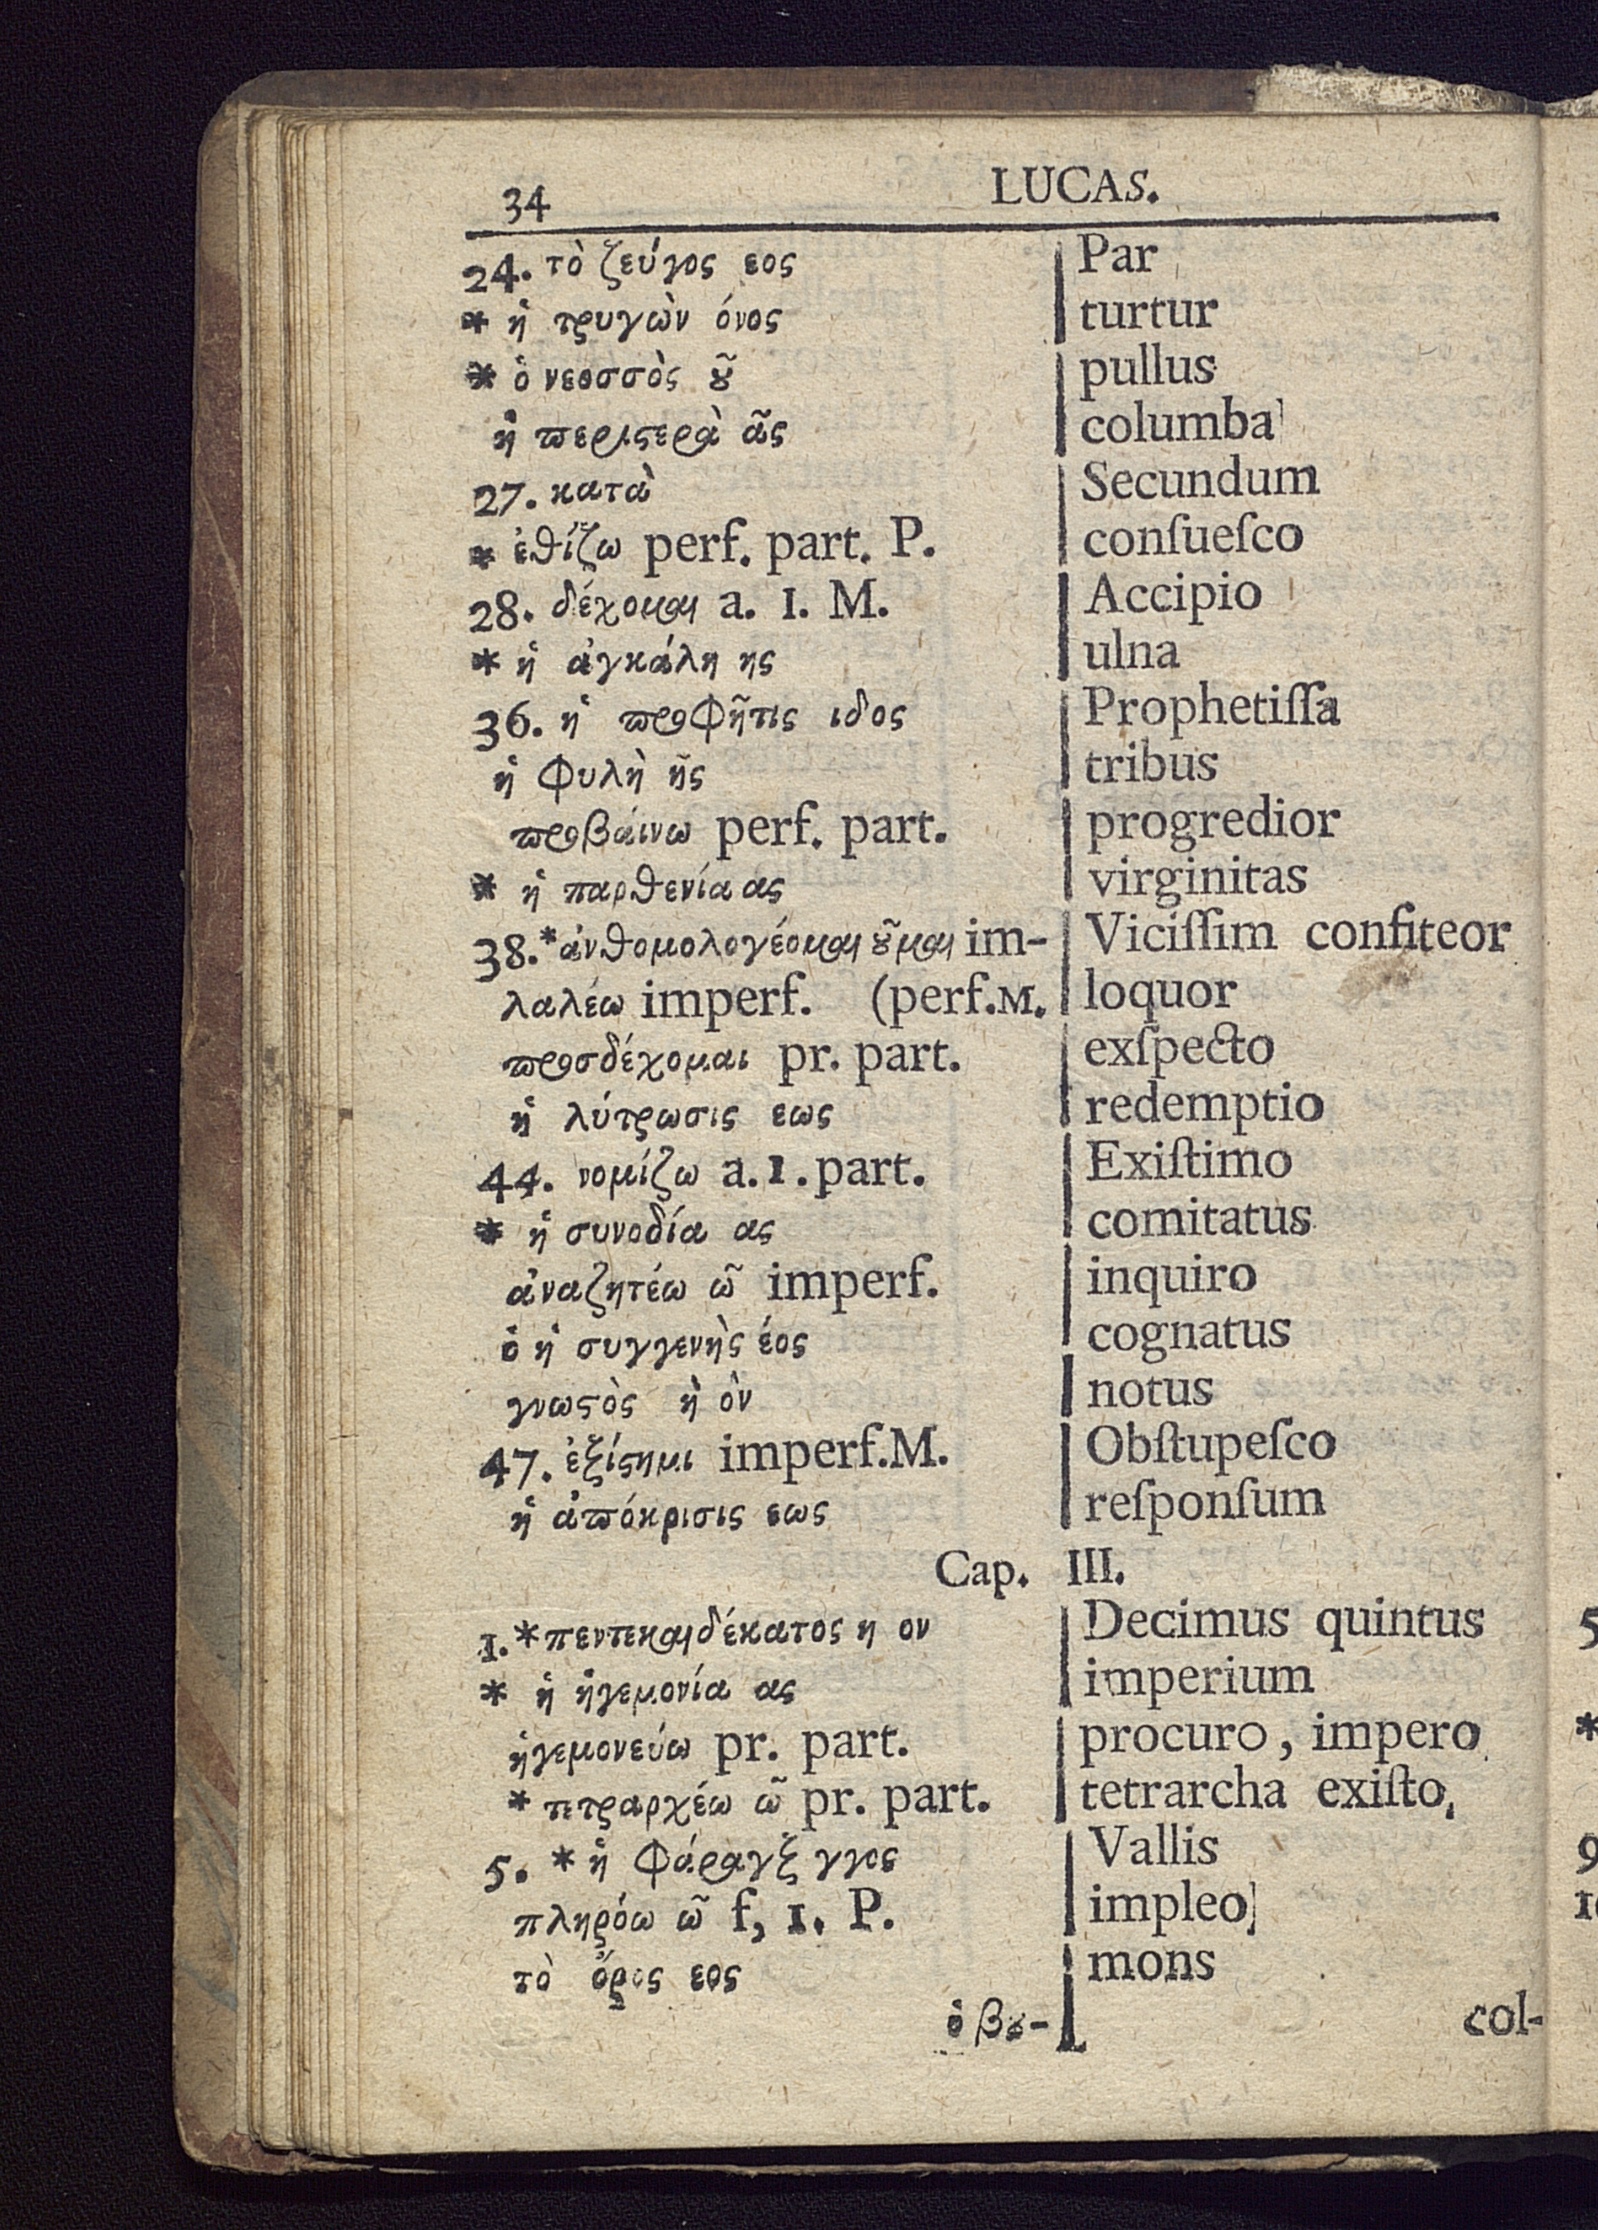 34 LUCAS.
24. τὸ ζεύγος εος Par
* ἡ τρυγὼν όνος turtur
* ὁ νεοσσὸς ȣ͂ pullus
ἡ ϖεριϛερὰ ᾶς columba
27. κατὰ Secundum
* ἐθίζω perf. part. P. conſueſco
28. δέχομαι a. 1. M. Accipio
* ἡ ἀγκάλη ης ulna
36. ἡ ϖροφῆτις ιδος Prophetiſſa
ἡ φυλὴ ῆς tribus
ϖροβάινω perf. part. progredior
* ἡ παρθενία ας virginitas
38.* ἀνθομολογέομαι ȣ͂μαι im- Viciſſim confiteor
λαλέω imperf. (perf.M. loquor
ϖροσδέχομαι pr. part. exſpecto
ἡ λύτρωσις εως redemptio
44. νομίζω a. 1. part. Exiſtimo
* ἡ συνοδία ας comitatus
ἀναζητέω ῶ imperf. inquiro
ὁ ἡ συγγενὴς έος cognatus
γνωϛὸς ὴ ὸν notus
47. ἐξίϛημι imperf.M. Obſtupeſco
ἡ ἀϖόκρισις εως reſponſum
Cap. III.
1. * πεντεκαιδέκατος η ον Decimus quintus
* ἡ ἡγεμονία ας imperium
ἡγεμονεύω pr. part. procuro, impero
* τετραρχέω ῶ pr. part. tetrarcha exiſto,
5. * ἡ φάραγξ γγος Vallis
πληρόω ῶ f, 1. P. impleo
τὸ ὄρος εος mons
ὁ βȣ- col-